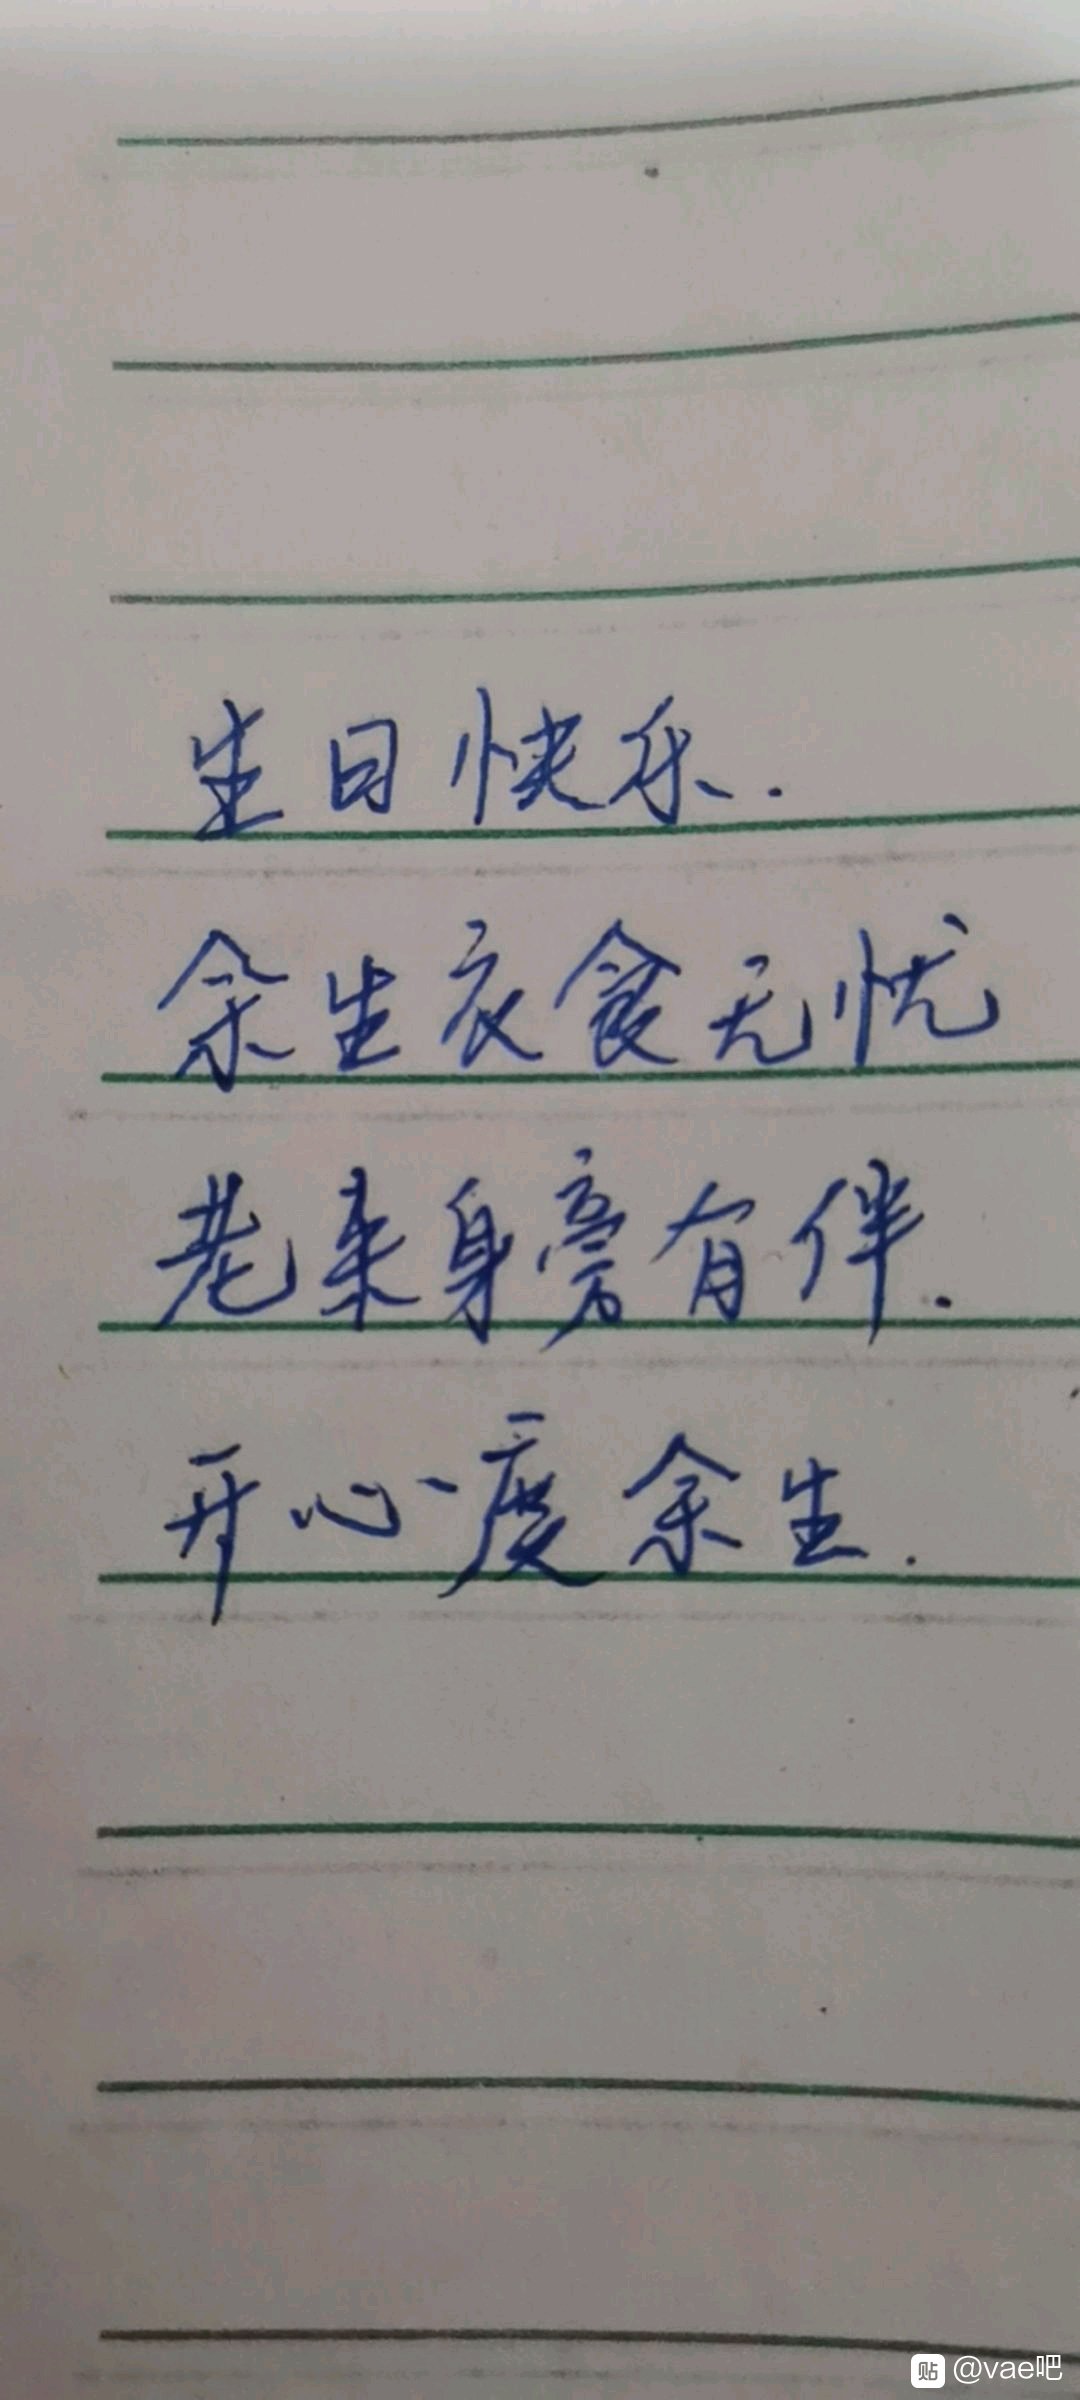 生日快乐.
余生衣食无忧
老来身旁有伴.
开心度余生.
贴 @vae吧